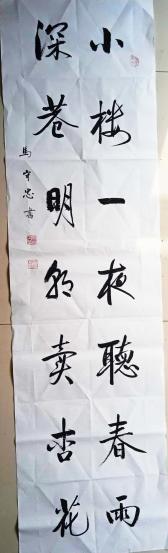 小樓一夜聽春雨
深巷明朝賣杏花
馬守忠書